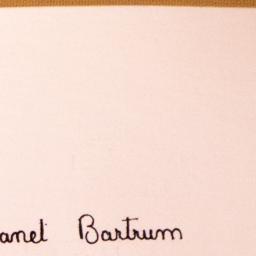 anet Bartrum